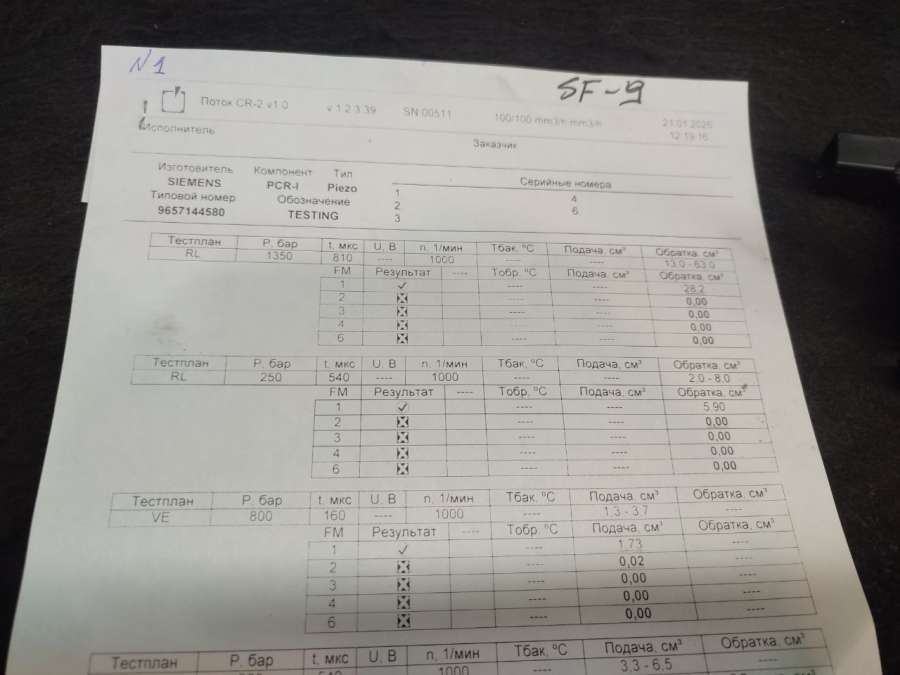 N1
SF-9
Поток CR-2 v1.0 v 1.2.3.39 SN:00511 100/100 mm3/h mm3/h 21.01.2026
12:19:16
Исполнитель Заказчик
Изготовитель Компонент Тип Серийные номера
SIEMENS PCR-I Piezo 1 4
Типовой номер Обозначение 2 6
9657144580 TESTING 3
Тестплан Р, бар t, мкс U, В n, 1/мин Тбак, °C Подача, см³ Обратка, см³
RL 1350 810 ---- 1000 ---- ---- 13.0 - 63.0
FM Результат ---- Тобр, °C Подача, см³ Обратка, см³
1 ✓ ---- ---- 28.2
2 ---- ---- 0,00
3 ---- ---- 0,00
4 ---- ---- 0,00
6 ---- ---- 0,00
Тестплан Р, бар t, мкс U, В n, 1/мин Тбак, °C Подача, см³ Обратка, см³
RL 250 540 ---- 1000 ---- ---- 2.0 - 8.0
FM Результат ---- Тобр, °C Подача, см³ Обратка, см³
1 ✓ ---- ---- 5.90
2 ---- ---- 0,00
3 ---- ---- 0,00
4 ---- ---- 0,00
6 ---- ---- 0,00
Тестплан Р, бар t, мкс U, В n, 1/мин Тбак, °C Подача, см³ Обратка, см³
VE 800 160 ---- 1000 ---- 1.3 - 3.7 ----
FM Результат ---- Тобр, °C Подача, см³ Обратка, см³
1 ✓ ---- 1.73 ----
2 ---- 0,02 ----
3 ---- 0,00 ----
4 ---- 0,00 ----
6 ---- 0,00 ----
Тестплан Р, бар t, мкс U, В n, 1/мин Тбак, °C Подача, см³ Обратка, см³
1000 ---- 3.3 - 6.5 ----